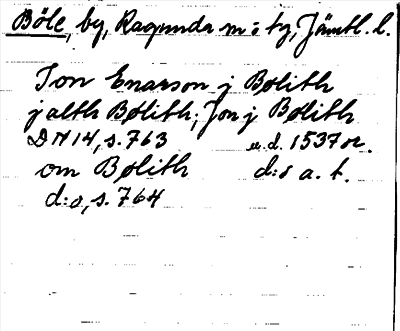 Böle, by, Ragunda sn o tg, Jämtl. l.
Ion Enarson j Bølith
j alth Bølith; Jon j Bølith
DN 14, s. 763 u.d. 1537 or.
om Bølith d:o a. t.
d:o, s. 764